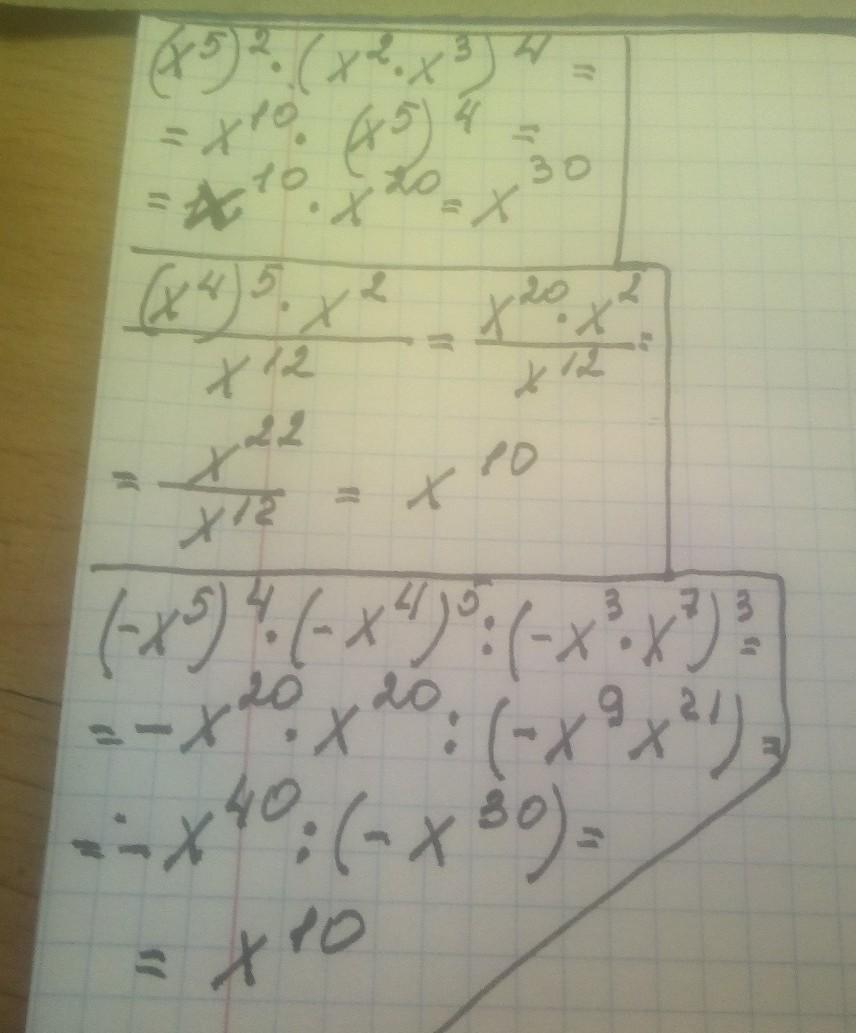 (x⁵)² · (x² · x³)⁴ =
= x¹⁰ · (x⁵)⁴ =
= x¹⁰ · x²⁰ = x³⁰
(x⁴)⁵ · x² / x¹² = x²⁰ · x² / x¹² =
= x²² / x¹² = x¹⁰
(-x⁵)⁴ · (-x⁴)⁵ : (-x³ · x⁷)³ =
= -x²⁰ · x²⁰ : (-x⁹x²¹) =
= -x⁴⁰ : (-x³⁰) =
= x¹⁰